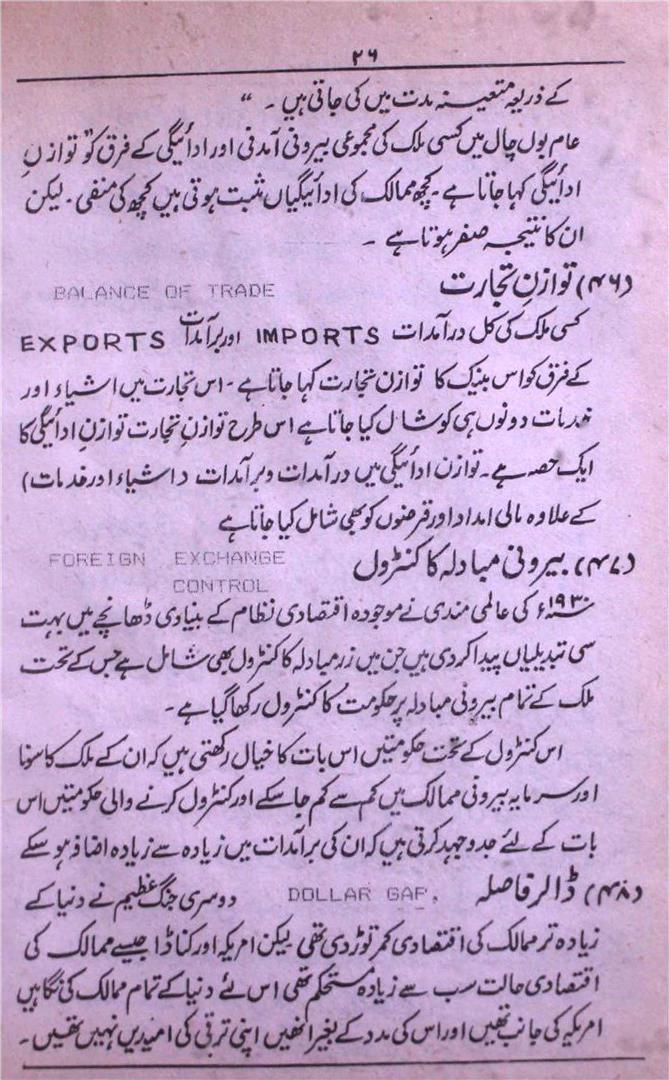 ۲۶
کے ذریعہ متعینہ مدت میں کی جاتی ہیں ۔ “
عام بول چال میں کسی ملک کی مجموعی بیرونی آمدنی اور ادائیگی کے فرق کو ”توازنِ
ادائیگی کہا جاتا ہے ۔ کچھ ممالک کی ادائیگیاں مثبت ہوتی ہیں کچھ کی منفی ۔ لیکن
ان کا نتیجہ صفر ہوتا ہے ۔
(۴۶) توازنِ تجارت BALANCE OF TRADE
کسی ملک کی کل درآمدات IMPORTS اور برآمدات EXPORTS
کے فرق کو اس بینک کا توازن تجارت کہا جاتا ہے ۔ اس تجارت میں اشیاء اور
خدمات دونوں ہی کو شامل کیا جاتا ہے اس طرح توازنِ تجارت توازنِ ادائیگی کا
ایک حصہ ہے ۔ توازن ادائیگی میں درآمدات و برآمدات (اشیاء اور خدمات)
کے علاوہ مالی امداد اور قرضوں کو بھی شامل کیا جاتا ہے
(۴۷) بیرونی مبادلہ کا کنٹرول FOREIGN EXCHANGE
CONTROL
۱۹۳۰ء کی عالمی مندی نے موجودہ اقتصادی نظام کے بنیاوی ڈھانچے میں بہت
سی تبدیلیاں پیدا کر دی ہیں جن میں زرمبادلہ کا کنٹرول بھی شامل ہے جس کے تحت
ملک کے تمام بیرونی مبادلہ پر حکومت کا کنٹرول رکھا گیا ہے ۔
اس کنٹرول کے تحت حکومتیں اس بات کا خیال رکھتی ہیں کہ ان کے ملک کا سونا
اور سرمایہ بیرونی ممالک میں کم سے کم جا سکے اور کنٹرول کرنے والی حکومتیں اس
بات کے لئے جدوجہد کرتی ہیں کہ ان کی برآمدات میں زیادہ سے زیادہ اضافہ ہو سکے
(۴۸) ڈالر فاصلہ DOLLAR GAP, دوسری جنگ عظیم نے دنیا کے
زیادہ تر ممالک کی اقتصادی کمر توڑ دی تھی لیکن امریکہ اور کناڈا جیسے ممالک کی
اقتصادی حالت سب سے زیادہ مستحکم تھی اس لئے دنیا کے تمام ممالک کی نگاہیں
امریکہ کی جانب تھیں اور اس کی مدد کے بغیر انھیں اپنی ترقی کی امیدیں نہیں تھیں ۔